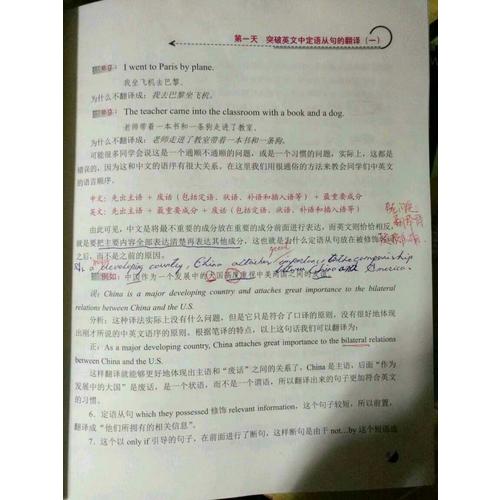 第一天 突破英文中定语从句的翻译（一）
I went to Paris by plane.
我坐飞机去巴黎。
为什么不翻译成：我去巴黎坐飞机。
The teacher came into the classroom with a book and a dog.
老师带着一本书和一条狗走进了教室。
为什么不翻译成：老师走进了教室带着一本书和一条狗。
可能很多同学会说这是一个通顺不通顺的问题，或是一个习惯的问题，实际上，这都是
错误的，因为这和中文的语序有很大关系。在这里我们用很通俗的方法来教会同学们中英文
的语言顺序。
中文：先出主语 + 废话（包括定语、状语、补语和插入语等）+ 最重要成分
英文：先出主语 + 最重要成分 + 废话（包括定语、状语、补语和插入语等）
由此可见，中文是将最不重要的成分放在重要的成分前面进行表达，而英文则恰恰相反，
就是要把主要内容全部表达清楚再表达其他成分，这也就是为什么定语从句放在被修饰
之后，而不是之前的原因。
great
As a developing country, China attaches importance to
between China and America.
例如：中国作为一个发展中的大国高度重视中美两国之间的
误：China is a major developing country and attaches great importance to the bilateral
relations between China and the U.S.
分析：这种译法实际上没有什么问题，但是它只是符合了口译的原则，没有很好地体现
出刚才所说的中英文语序的原则。根据笔译的特点，以上这句话我们可以翻译为：
正：As a major developing country, China attaches great importance to the bilateral relations
between China and the U.S.
这样翻译就能够更好地体现出主语和“废话”之间的关系了，China 是主语，后面“作为
发展中的大国”是废话，是一个状语，而不是一个谓语，所以翻译出来的句子更加符合英文
的习惯。
6．定语从句 which they possessed 修饰 relevant information，这个句子较短，所以前置，
翻译成“他们所拥有的相关信息”。
7．这个以 only if 引导的句子，在前面进行了断句，这样断句是由于 not...by 这个短语造